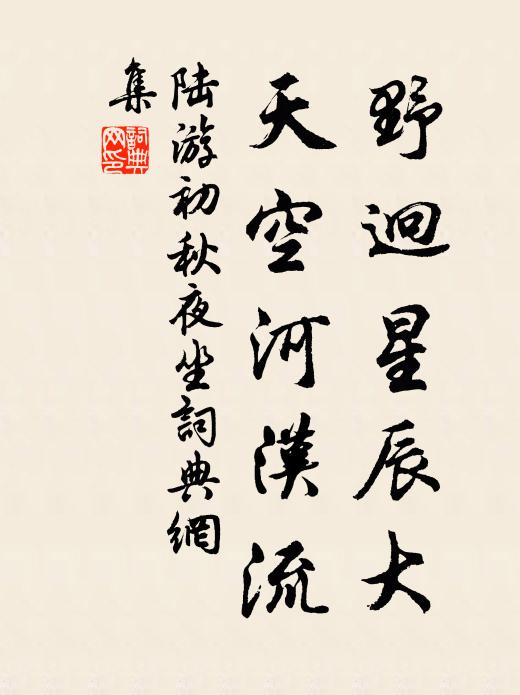 野迥星辰大
天空河漢流
陸游初秋夜坐詞典網
集
詞典
网印